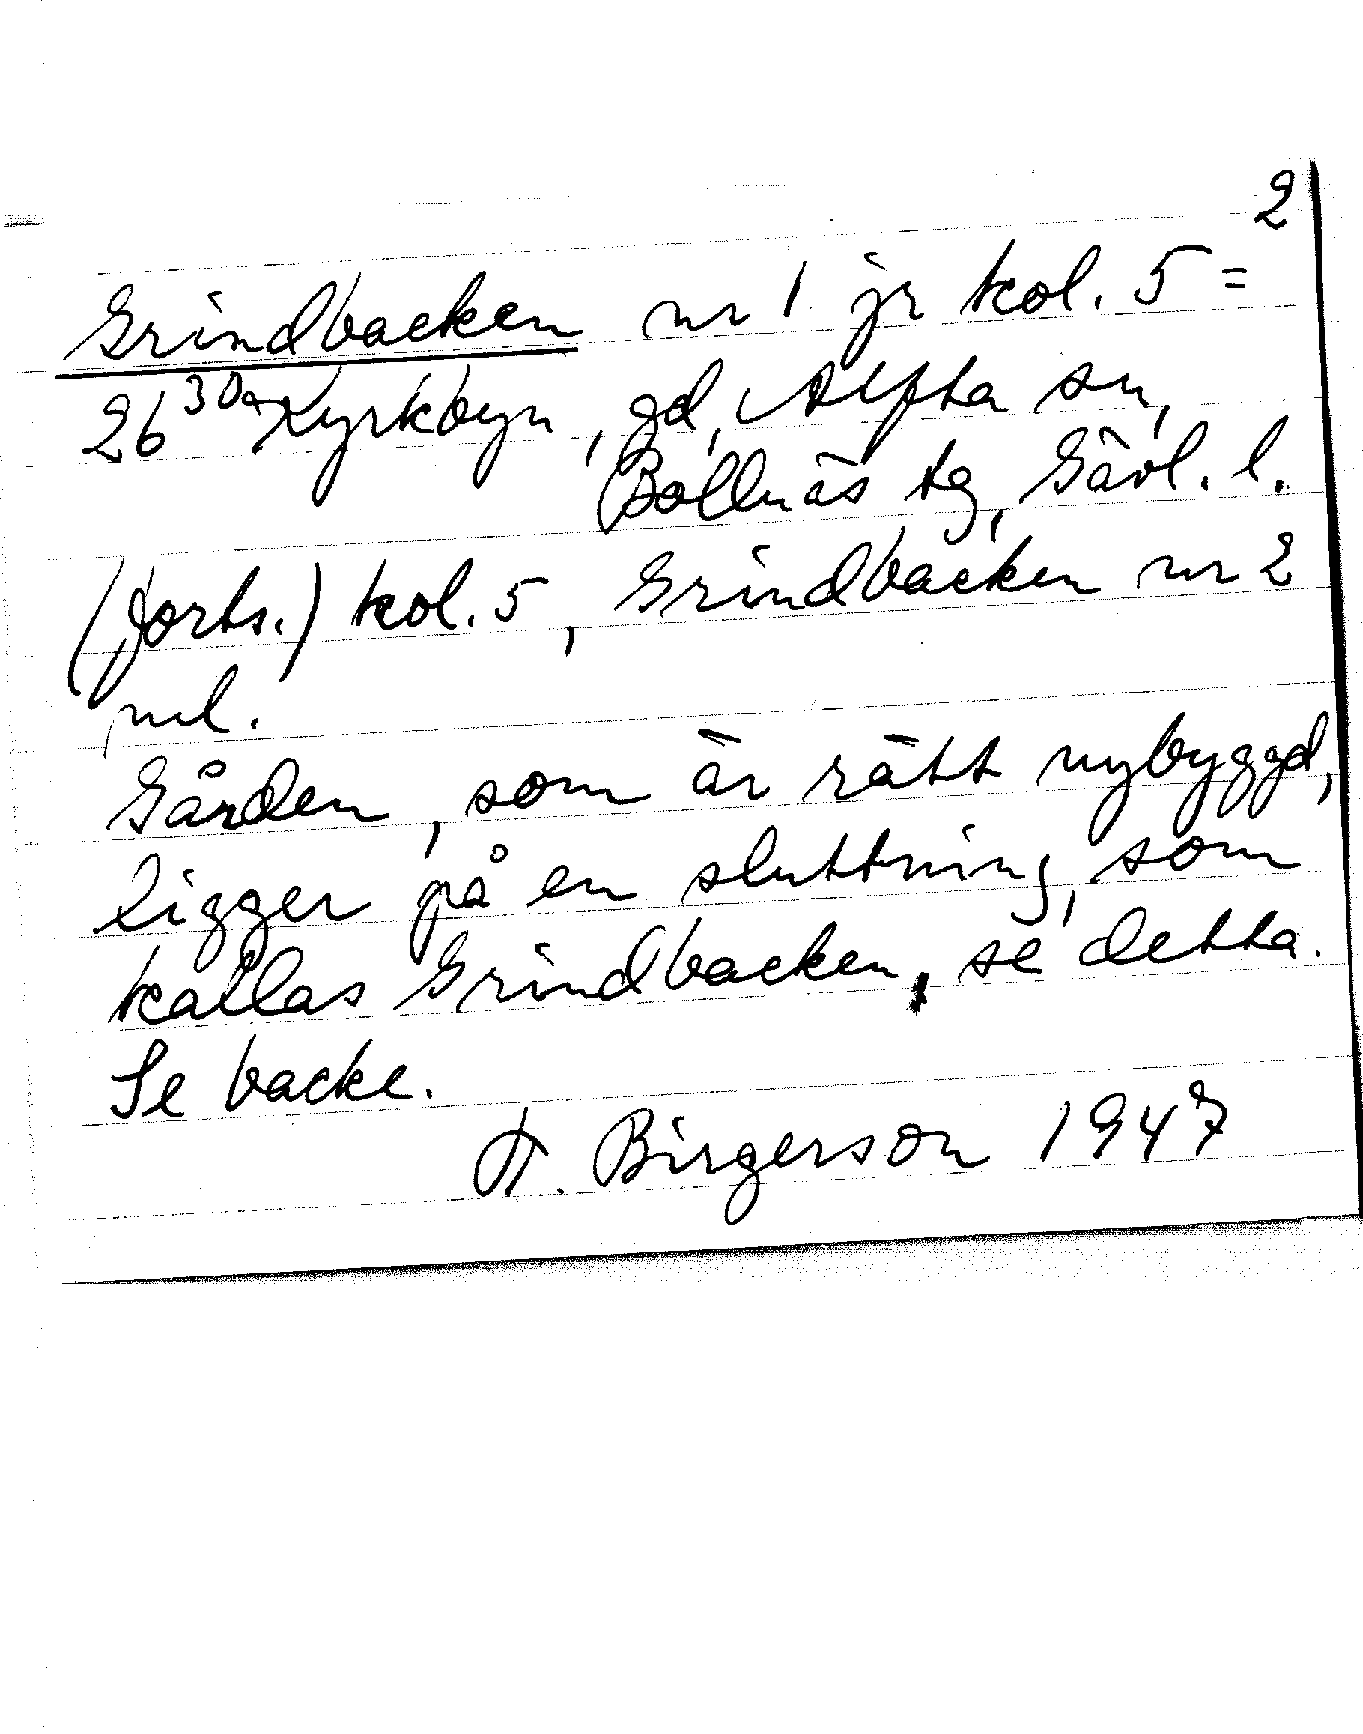 2
Grindbacken nr 1 jr kol. 5 =
26 30a Kyrkbyn, gd, Alfta sn,
Bollnäs tg, Gävl. l.
(forts.) kol. 5, Grindbacken nr 2
nul.
Gården, som är rätt nybyggd,
ligger på en sluttning, som
kallas Grindbacken, se detta.
Se backe.
H. Birgerson 1947